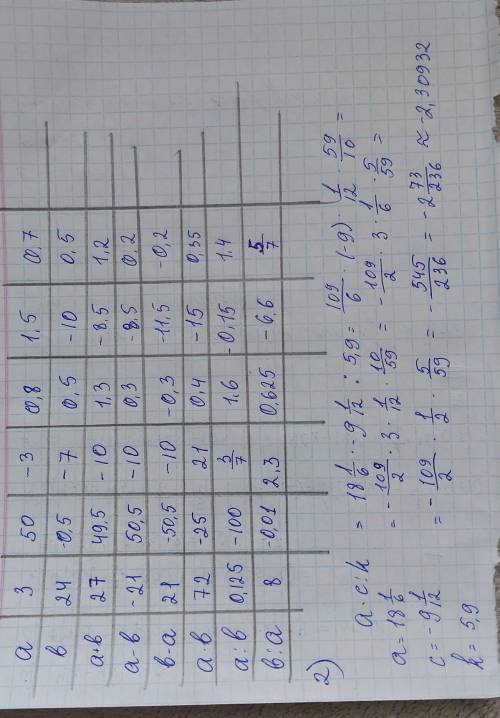 a 3 50 -3 0,8 1,5 0,7
в 24 -0,5 -7 0,5 -10 0,5
a+в 27 49,5 -10 1,3 -8,5 1,2
a-в -21 50,5 -10 0,3 -8,5 0,2
в-a 21 -50,5 -10 -0,3 -11,5 -0,2
a·в 72 -25 21 0,4 -15 0,35
a:в 0,125 -100 3/7 1,6 -0,15 1,4
в:a 8 -0,01 2,3 0,625 -6,6 5/7
2)
a·c:k = 18 1/6 · -9 1/12 : 5,9 = 109/6 · (-9) · 1/12 · 59/10 =
a = 18 1/6 = - 109/2 · 3 · 1/12 · 10/59 = - 109/2 · 3 · 1/6 · 5/59 =
c = -9 1/12 = - 109/2 · 1/2 · 5/59 = - 545/236 = -2 73/236 ≈ -2,30932
k = 5,9